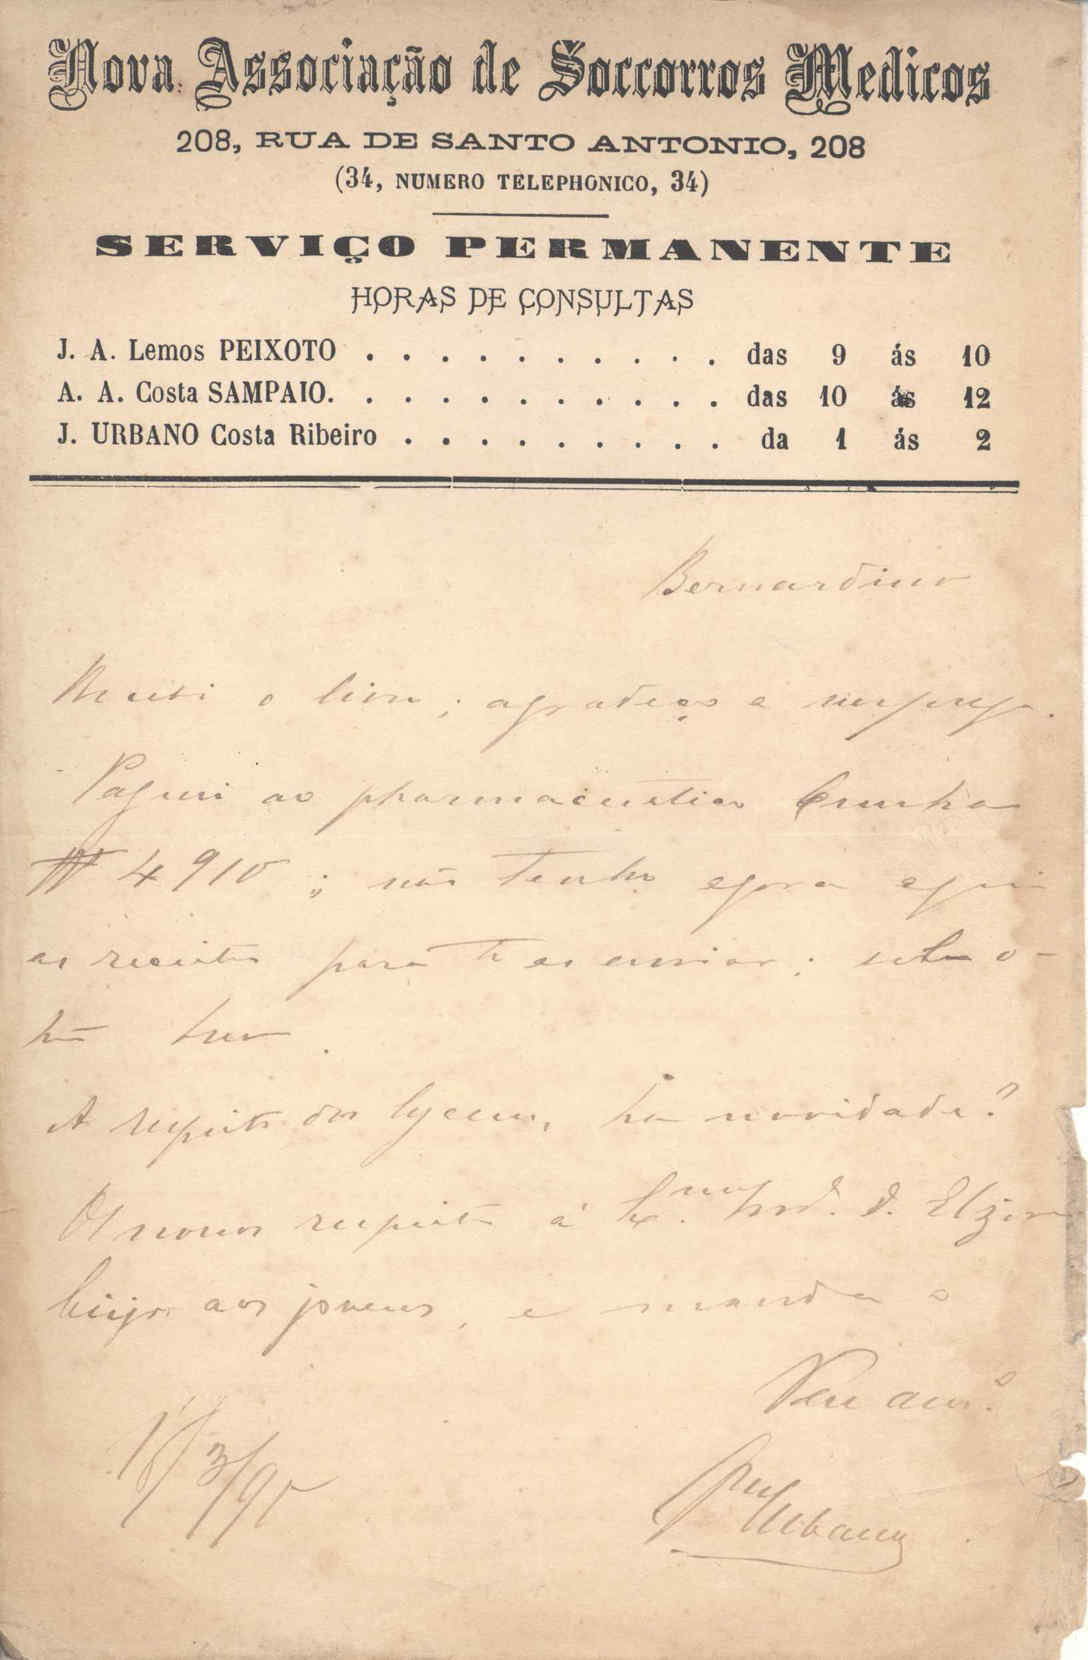 Nova Associação de Soccorros Medicos
208, RUA DE SANTO ANTONIO, 208
(34, NUMERO TELEPHONICO, 34)
SERVIÇO PERMANENTE
HORAS DE CONSULTAS
J. A. Lemos PEIXOTO . . . . . . . . . . das 9 ás 10
A. A. Costa SAMPAIO. . . . . . . . . . . das 10 ás 12
J. URBANO Costa Ribeiro . . . . . . . . . da 1 ás 2
Bernardino
o livro; agradeço e
Paguei ao pharmaceutico Cunha
4910; não tenho agora aqui
as receitas para t'as enviar;
A respeito do lyceu, ha novidade?
Os nossos respeitos á D. Elzira
beijos aos jovens, e manda o
Teu am.º
José Urbano